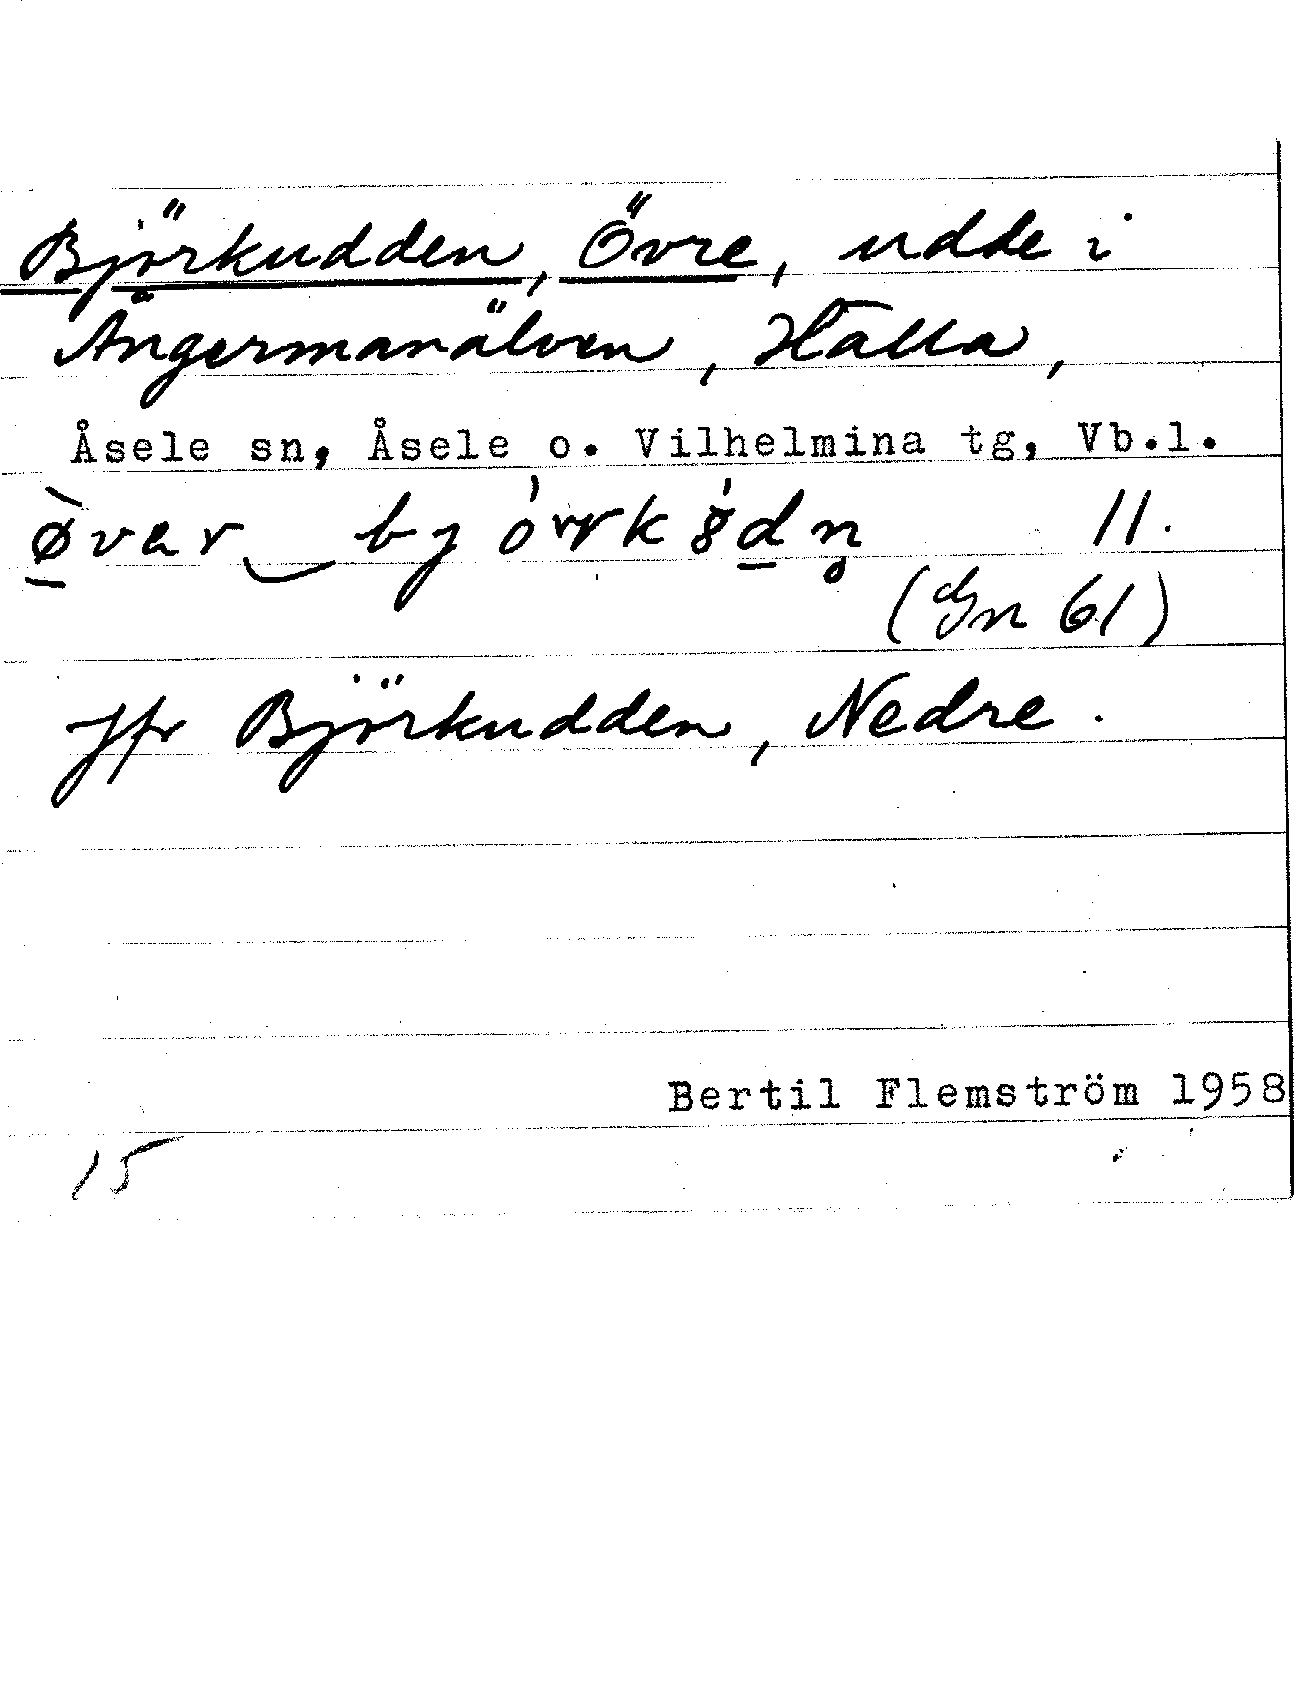 Björkudden, Övre, udde i
Ångermanälven, Hälla,
Åsele sn, Åsele o. Vilhelmina tg, Vb.l.
11.
(Gn 61)
Jfr Björkudden, Nedre.
Bertil Flemström 1958
15